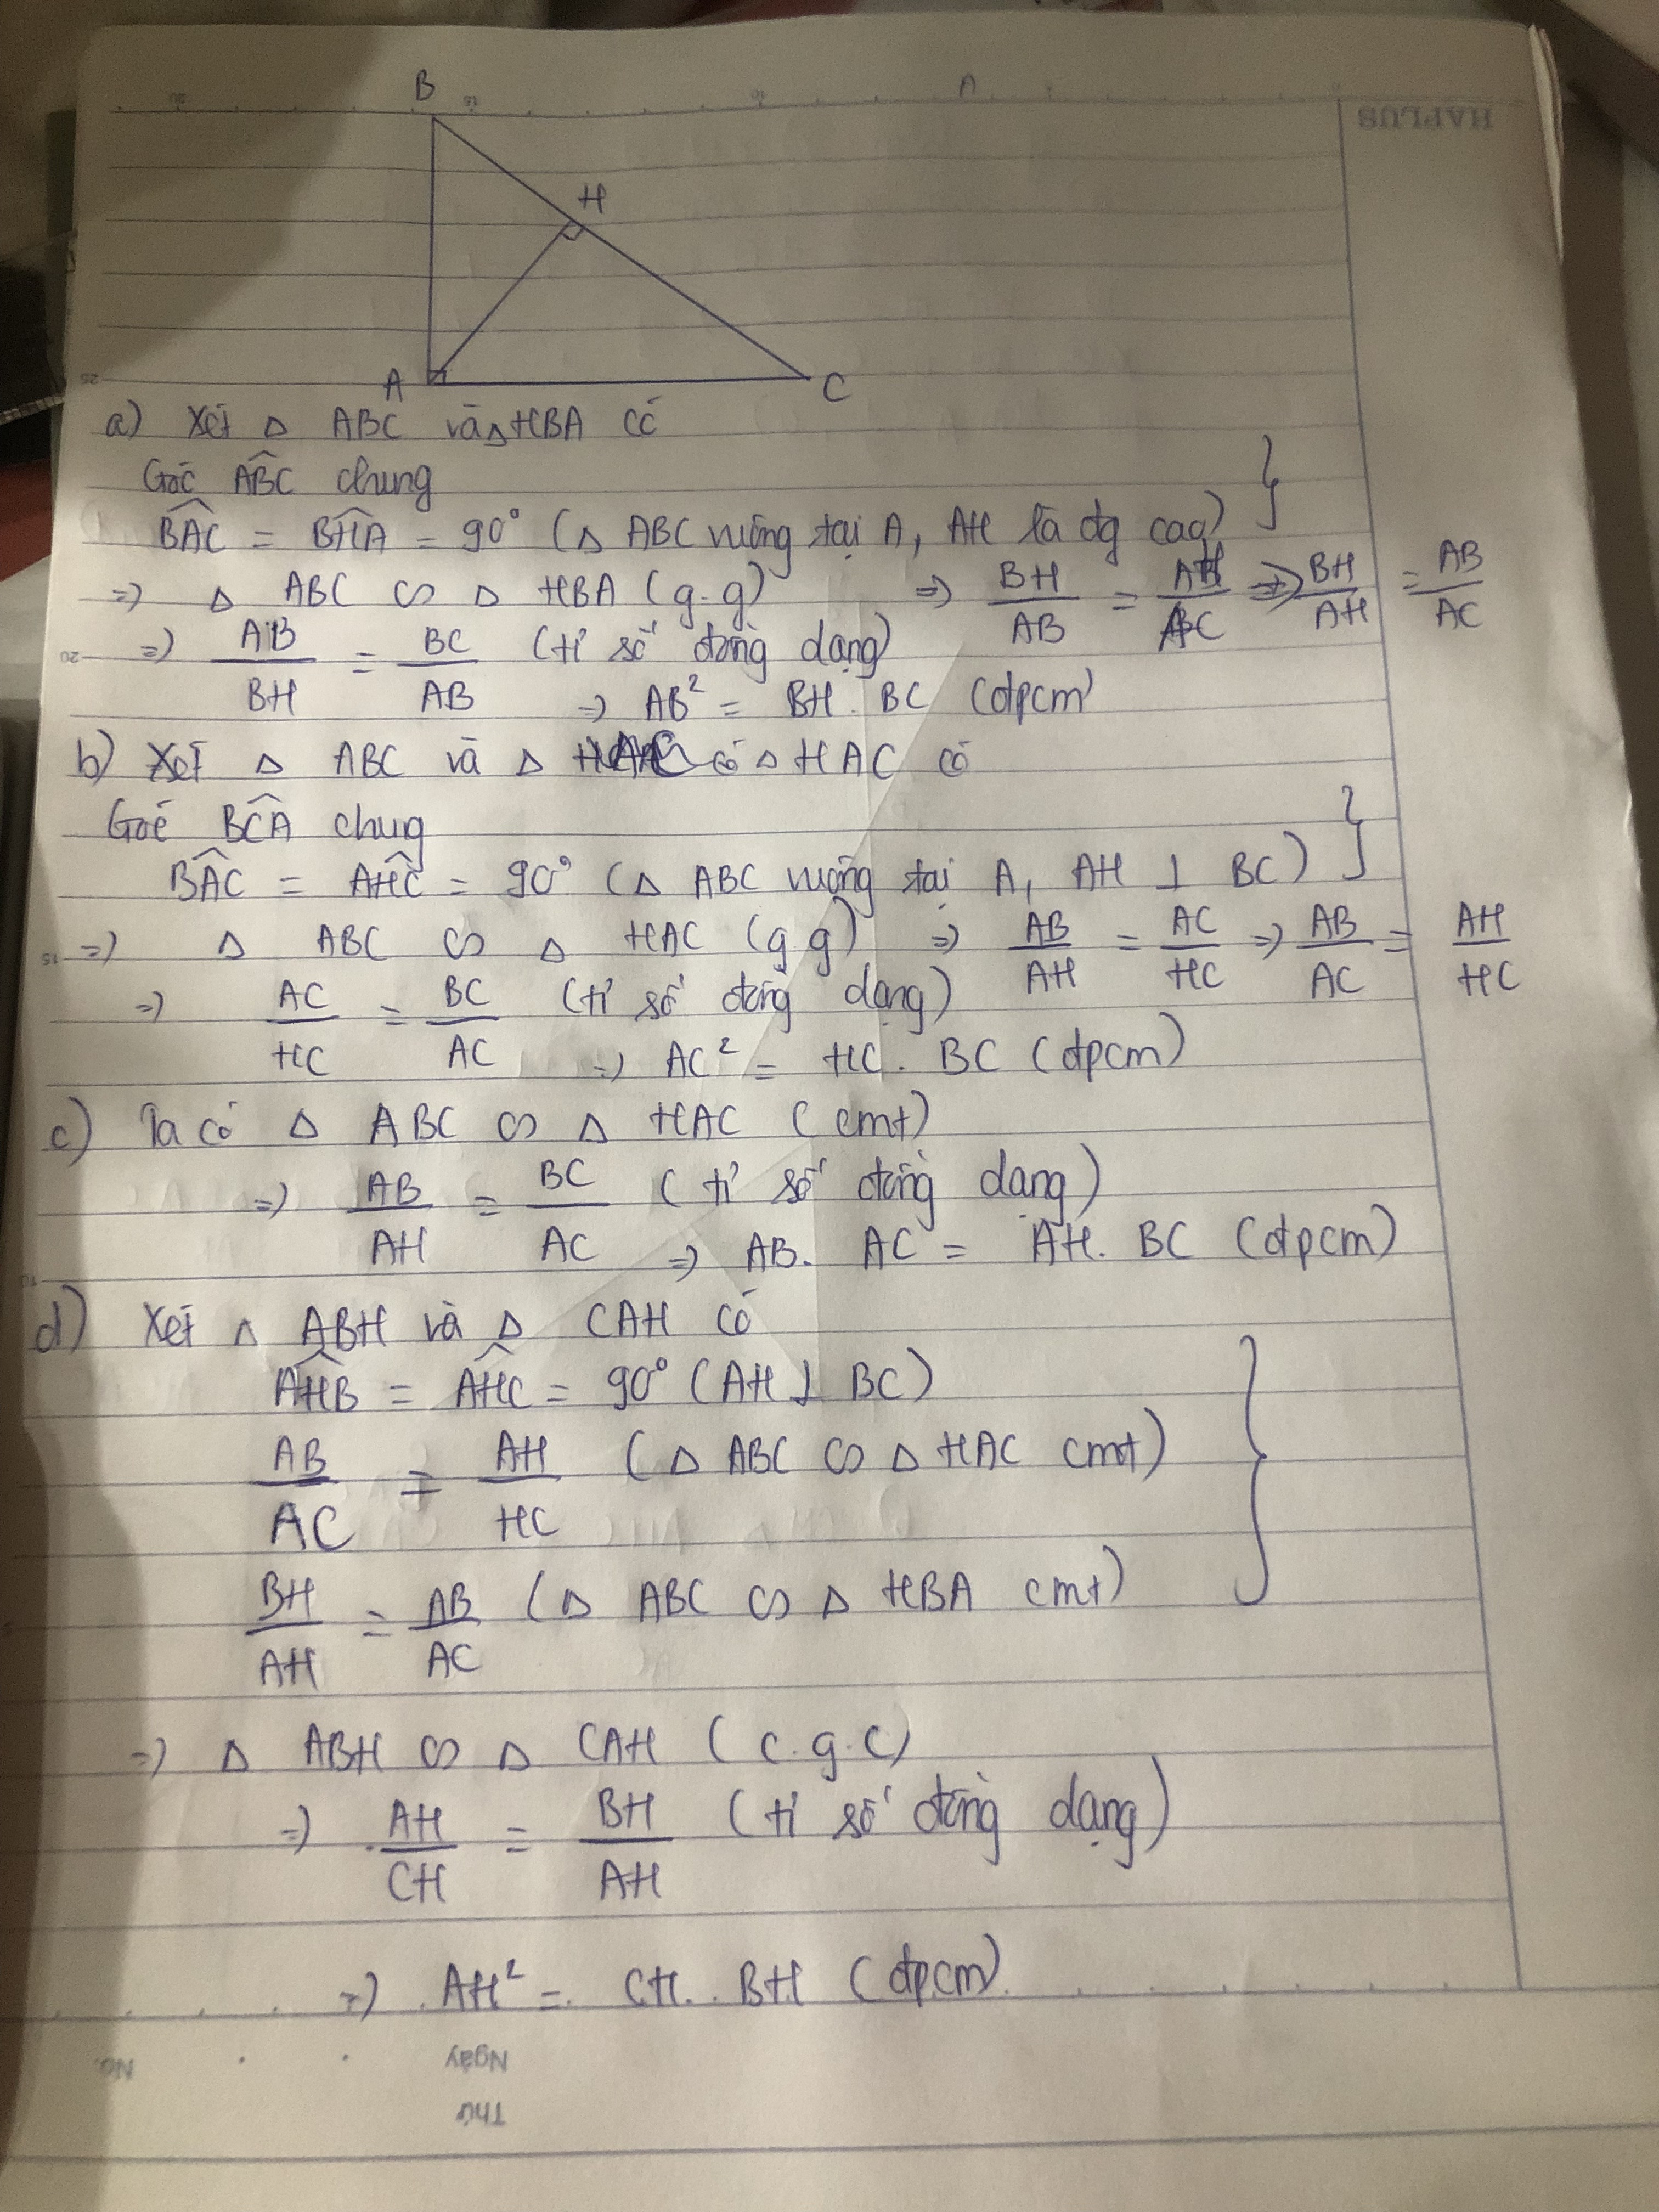 B
A
HAPLUS
H
A
C
a) Xét △ ABC và △ HBA có
Góc ABC chung
BAC = BHA = 90° (△ ABC vuông tại A, AH là đg cao)
=> △ ABC ∽ △ HBA (g.g) => BH/AB = AH/AC => BH/AH = AB/AC
=> AB/BH = BC/AB (tỉ số đồng dạng)
=> AB² = BH . BC (đpcm)
b) Xét △ ABC và △ có △ HAC có
Góc BCA chug
BAC = AHC = 90° (△ ABC vuông tại A, AH ⊥ BC)
=> △ ABC ∽ △ HAC (g.g) => AB/AH = AC/HC => AB/AC = AH/HC
=> AC/HC = BC/AC (tỉ số đồng dạng)
=> AC² = HC . BC (đpcm)
c) Ta có △ ABC ∽ △ HAC (cmt)
=> AB/AH = BC/AC (tỉ số đồng dạng)
=> AB. AC = AH. BC (đpcm)
d) Xét △ ABH và △ CAH có
AHB = AHC = 90° (AH ⊥ BC)
AB/AC = AH/HC (△ ABC ∽ △ HAC cmt)
BH/AH = AB/AC (△ ABC ∽ △ HBA cmt)
=> △ ABH ∽ △ CAH (c.g.c)
=> AH/CH = BH/AH (tỉ số đồng dạng)
=> AH² = CH . BH (đpcm)
No.
Ngày
Thứ